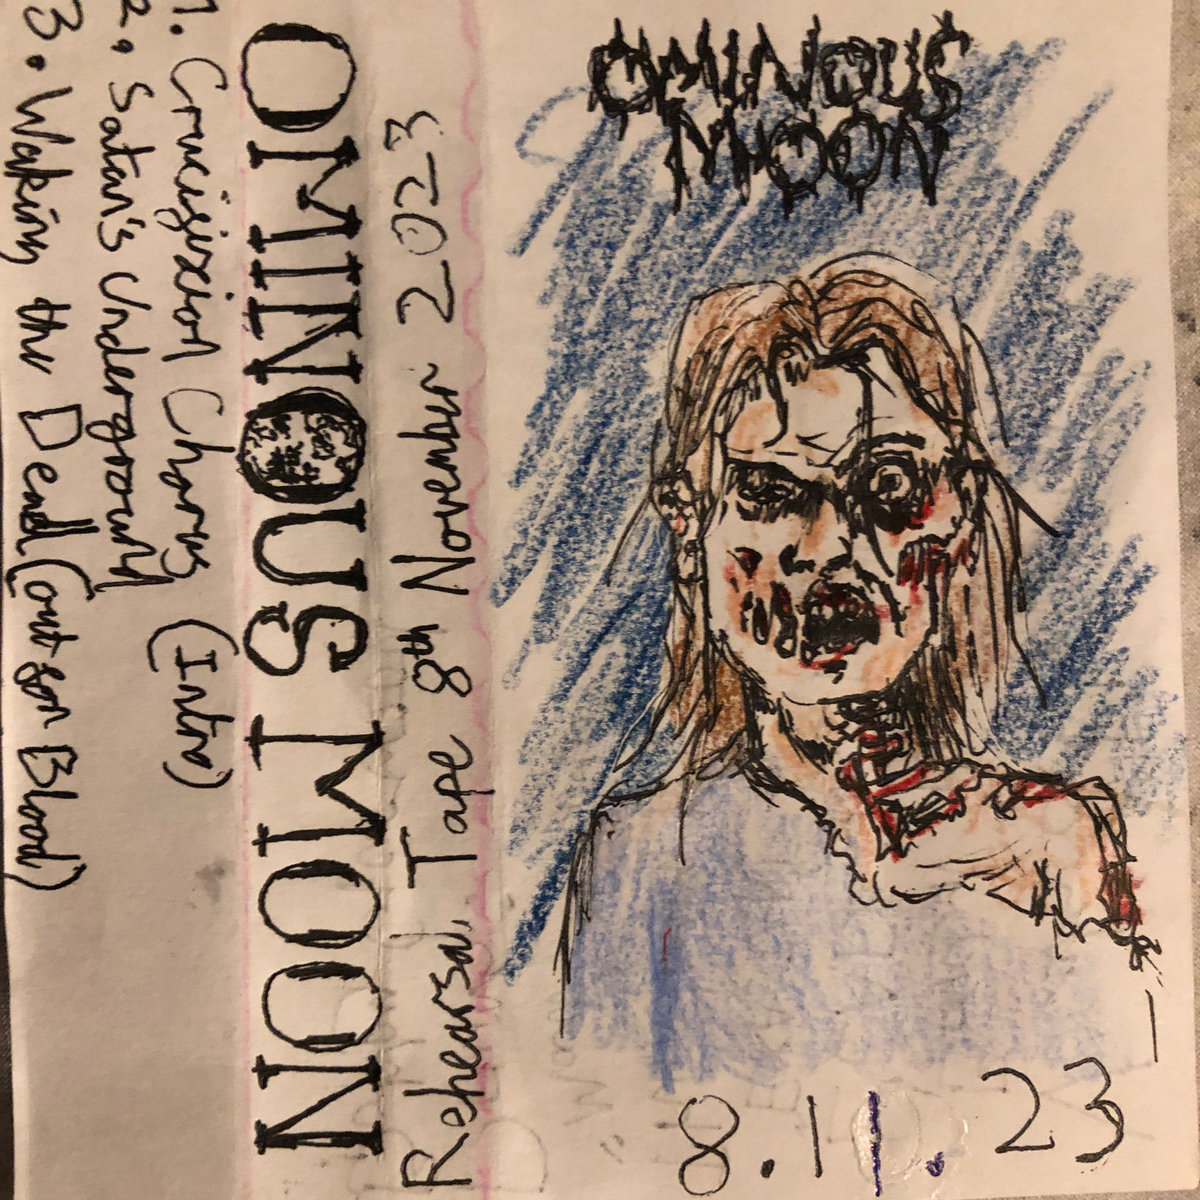 OMINOUS
MOON
8.11.23
Rehearsal Tape 8th November 2023
OMINOUS MOON
1. Crucifixion Chorus (Intro)
2. Satan's Undergroung
3. Waking the Dead (out for Blood)